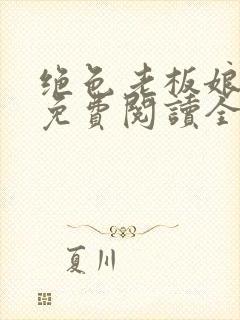 绝色老板娘
免費閱讀全
夏川